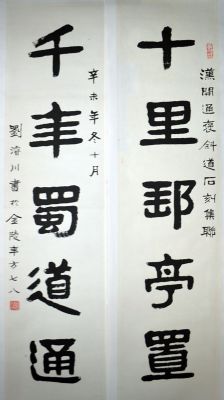 漢開通褒斜道石刻集聯
十里郵亭置
千年蜀道通
辛未年冬十月
劉濬川書於金陵年方七八